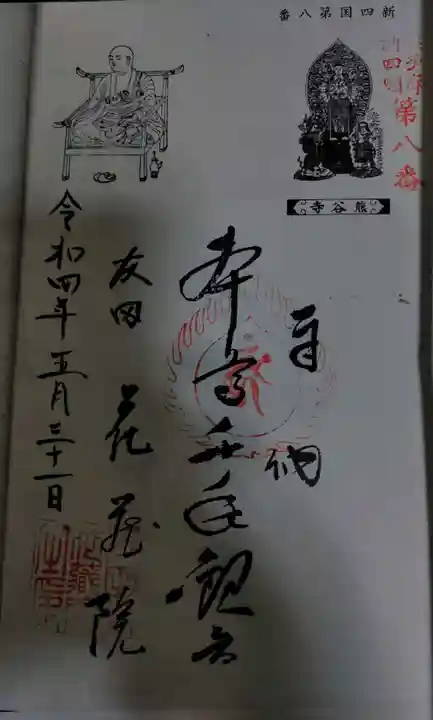 新四国第八番
新四国
第八番
熊谷寺
奉納
本尊千手観音
友田 花蔵院
令和四年五月三十一日